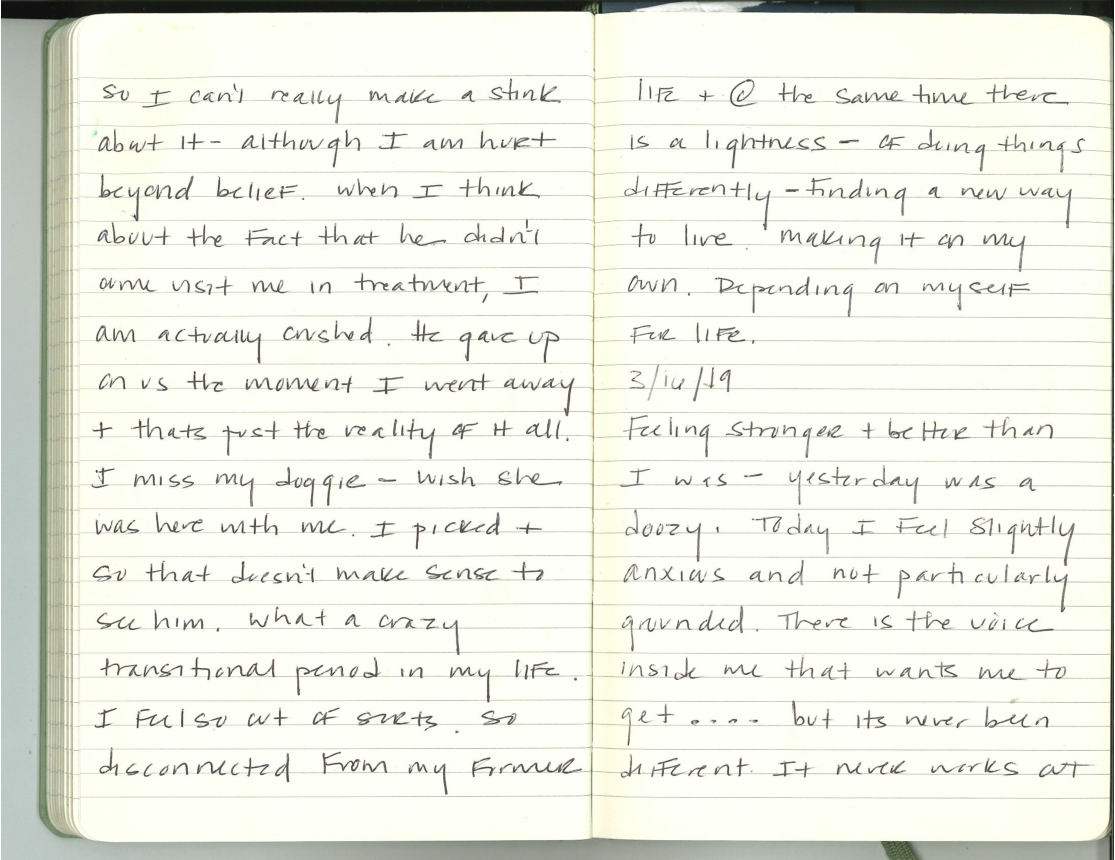 so I can't really make a stink
about it - although I am hurt
beyond belief. when I think
about the fact that he didn't
come visit me in treatment, I
am actually crushed. He gave up
on us the moment I went away
+ thats just the reality of it all.
I miss my doggie - wish she
was here with me. I picked +
so that doesn't make sense to
see him. what a crazy
transitional period in my life.
I feel so out of sorts. so
disconnected from my former
life + @ the same time there
is a lightness - of doing things
differently - finding a new way
to live. making it on my
own. Depending on myself
for life.
3/16/19
Feeling stronger + better than
I was - yesterday was a
doozy. Today I feel slightly
anxious and not particularly
grounded. There is the voice
inside me that wants me to
get .... but its never been
different. It never works out